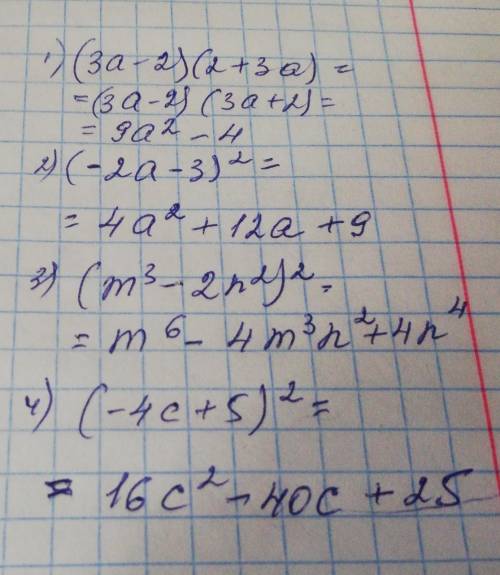 1) (3a-2)(2+3a) =
= (3a-2) (3a+2) =
= 9a² - 4
2) (-2a-3)² =
= 4a² + 12a + 9
3) (m³ - 2n²)² =
= m⁶ - 4m³n² + 4n⁴
4) (-4c+5)² =
= 16c² - 40c + 25